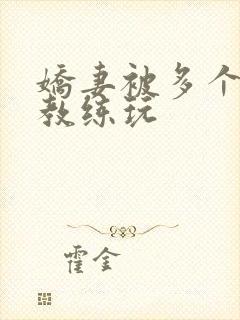 娇妻被多个
教练玩
霍金